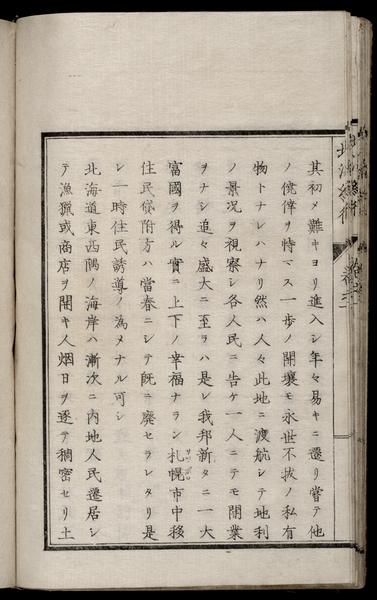 其初メ難キヨリ進入シ年々易キニ遷リ嘗テ他
ノ僥倖ヲ恃マス一歩ノ開壤モ永世不抜ノ私有
物トナレハナリ然ハ人々此地ニ渡航シテ地利
ノ景况ヲ視察シ各人民ニ告ケ一人ニテモ開業
ヲナシ追々盛大ニ至ラハ是レ我邦新タニ一大
富國ヲ得ル實ニ上下ノ幸福ナラン札幌市中移
サツホロ
住民貸附方ハ當春ニシテ既ニ廃セラレタリ是
レ一時住民誘導ノ為メナル可シ
北海道東西隅ノ海岸ハ漸次ニ内地人民遷居シ
テ漁獵或商店ヲ開キ人烟日ヲ逐テ稠密セリ土
北海紀行